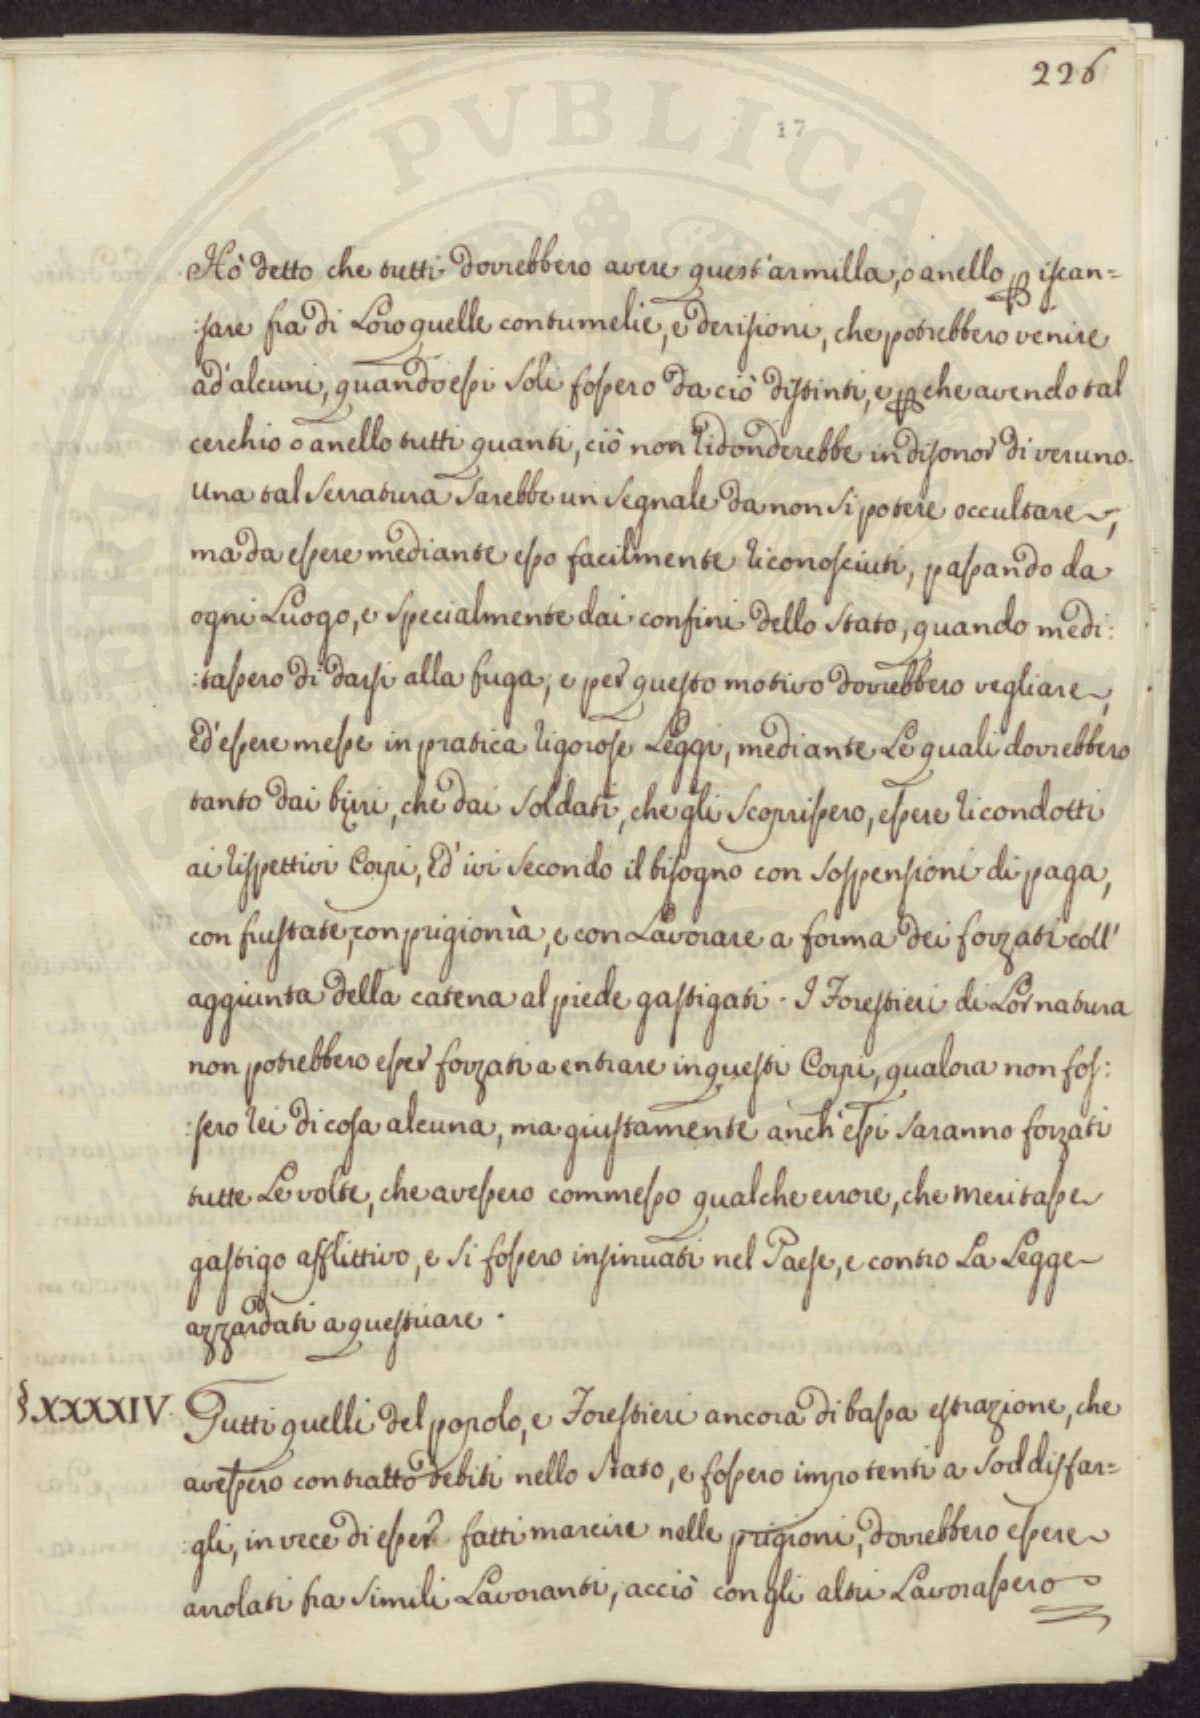 226
17
SIGILLVM PVBLICAE
Hò detto che tutti dovrebbero avere quest'armilla, o anello p iscan=
:sare fra di Loro quelle contumelie, e derisioni, che potrebbero venire
ad'alcuni, quando essi soli fossero da ciò distinti, e pche avendo tal
cerchio o anello tutti quanti, ciò non ridonderebbe in disonor di veruno.
Una tal serratura sarebbe un segnale da non si potere occultare,
ma da essere mediante esso facilmente riconosciuti, passando da
ogni Luogo, e specialmente dai confini dello stato, quando medi:
:tassero di darsi alla fuga; e per questo motivo dovrebbero vegliare,
ed'essere messe in pratica rigorose Leggi, mediante Le quali dovrebbero
tanto dai birri, che dai soldati, che gli scoprissero, essere ricondotti
ai rispettivi Corpi, ed'ivi secondo il bisogno con sospensioni di paga,
con frustate, con prigionìa, e con Lavorare a forma dei forzati coll'
aggiunta della catena al piede gastigati. I Forestieri di Lor natura
non potrebbero esser forzati a entrare in questi Corpi, qualora non fos:
:sero rei di cosa alcuna, ma giustamente anch'essi saranno forzati
tutte Le volte, che avessero commesso qualche errore, che meritasse
gastigo afflittivo, e si fossero insinuati nel Paese, e contro La Legge
azzardati a questuare.
§XXXXIV. Tutti quelli del popolo, e Forestieri ancora di bassa estrazione, che
avessero contratto debiti nello stato, e fossero impotenti a soddisfar=
:gli, in vece di esser fatti marcire nelle prigioni, dovrebbero essere
arrolati fra simili Lavoranti, acciò con gli altri Lavorassero